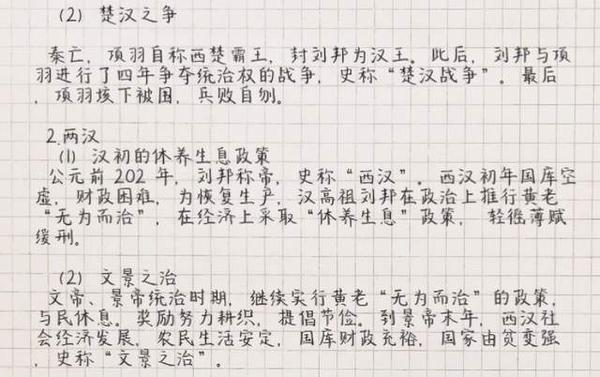 (2) 楚汉之争
秦亡，项羽自称西楚霸王，封刘邦为汉王。此后，刘邦与项
羽进行了四年争夺统治权的战争，史称“楚汉战争”。最后
，项羽垓下被围，兵败自刎。
2.两汉
(1) 汉初的休养生息政策
公元前 202 年，刘邦称帝，史称“西汉”。西汉初年国库空
虚，财政困难，为恢复生产，汉高祖刘邦在政治上推行黄老
“无为而治”，在经济上采取“休养生息”政策，轻徭薄赋
缓刑。
(2) 文景之治
文帝、景帝统治时期，继续实行黄老“无为而治”的政策，
与民休息。奖励努力耕织，提倡节俭。到景帝末年，西汉社
会经济发展，农民生活安定，国库财政充裕，国家由贫变强
，史称“文景之治”。